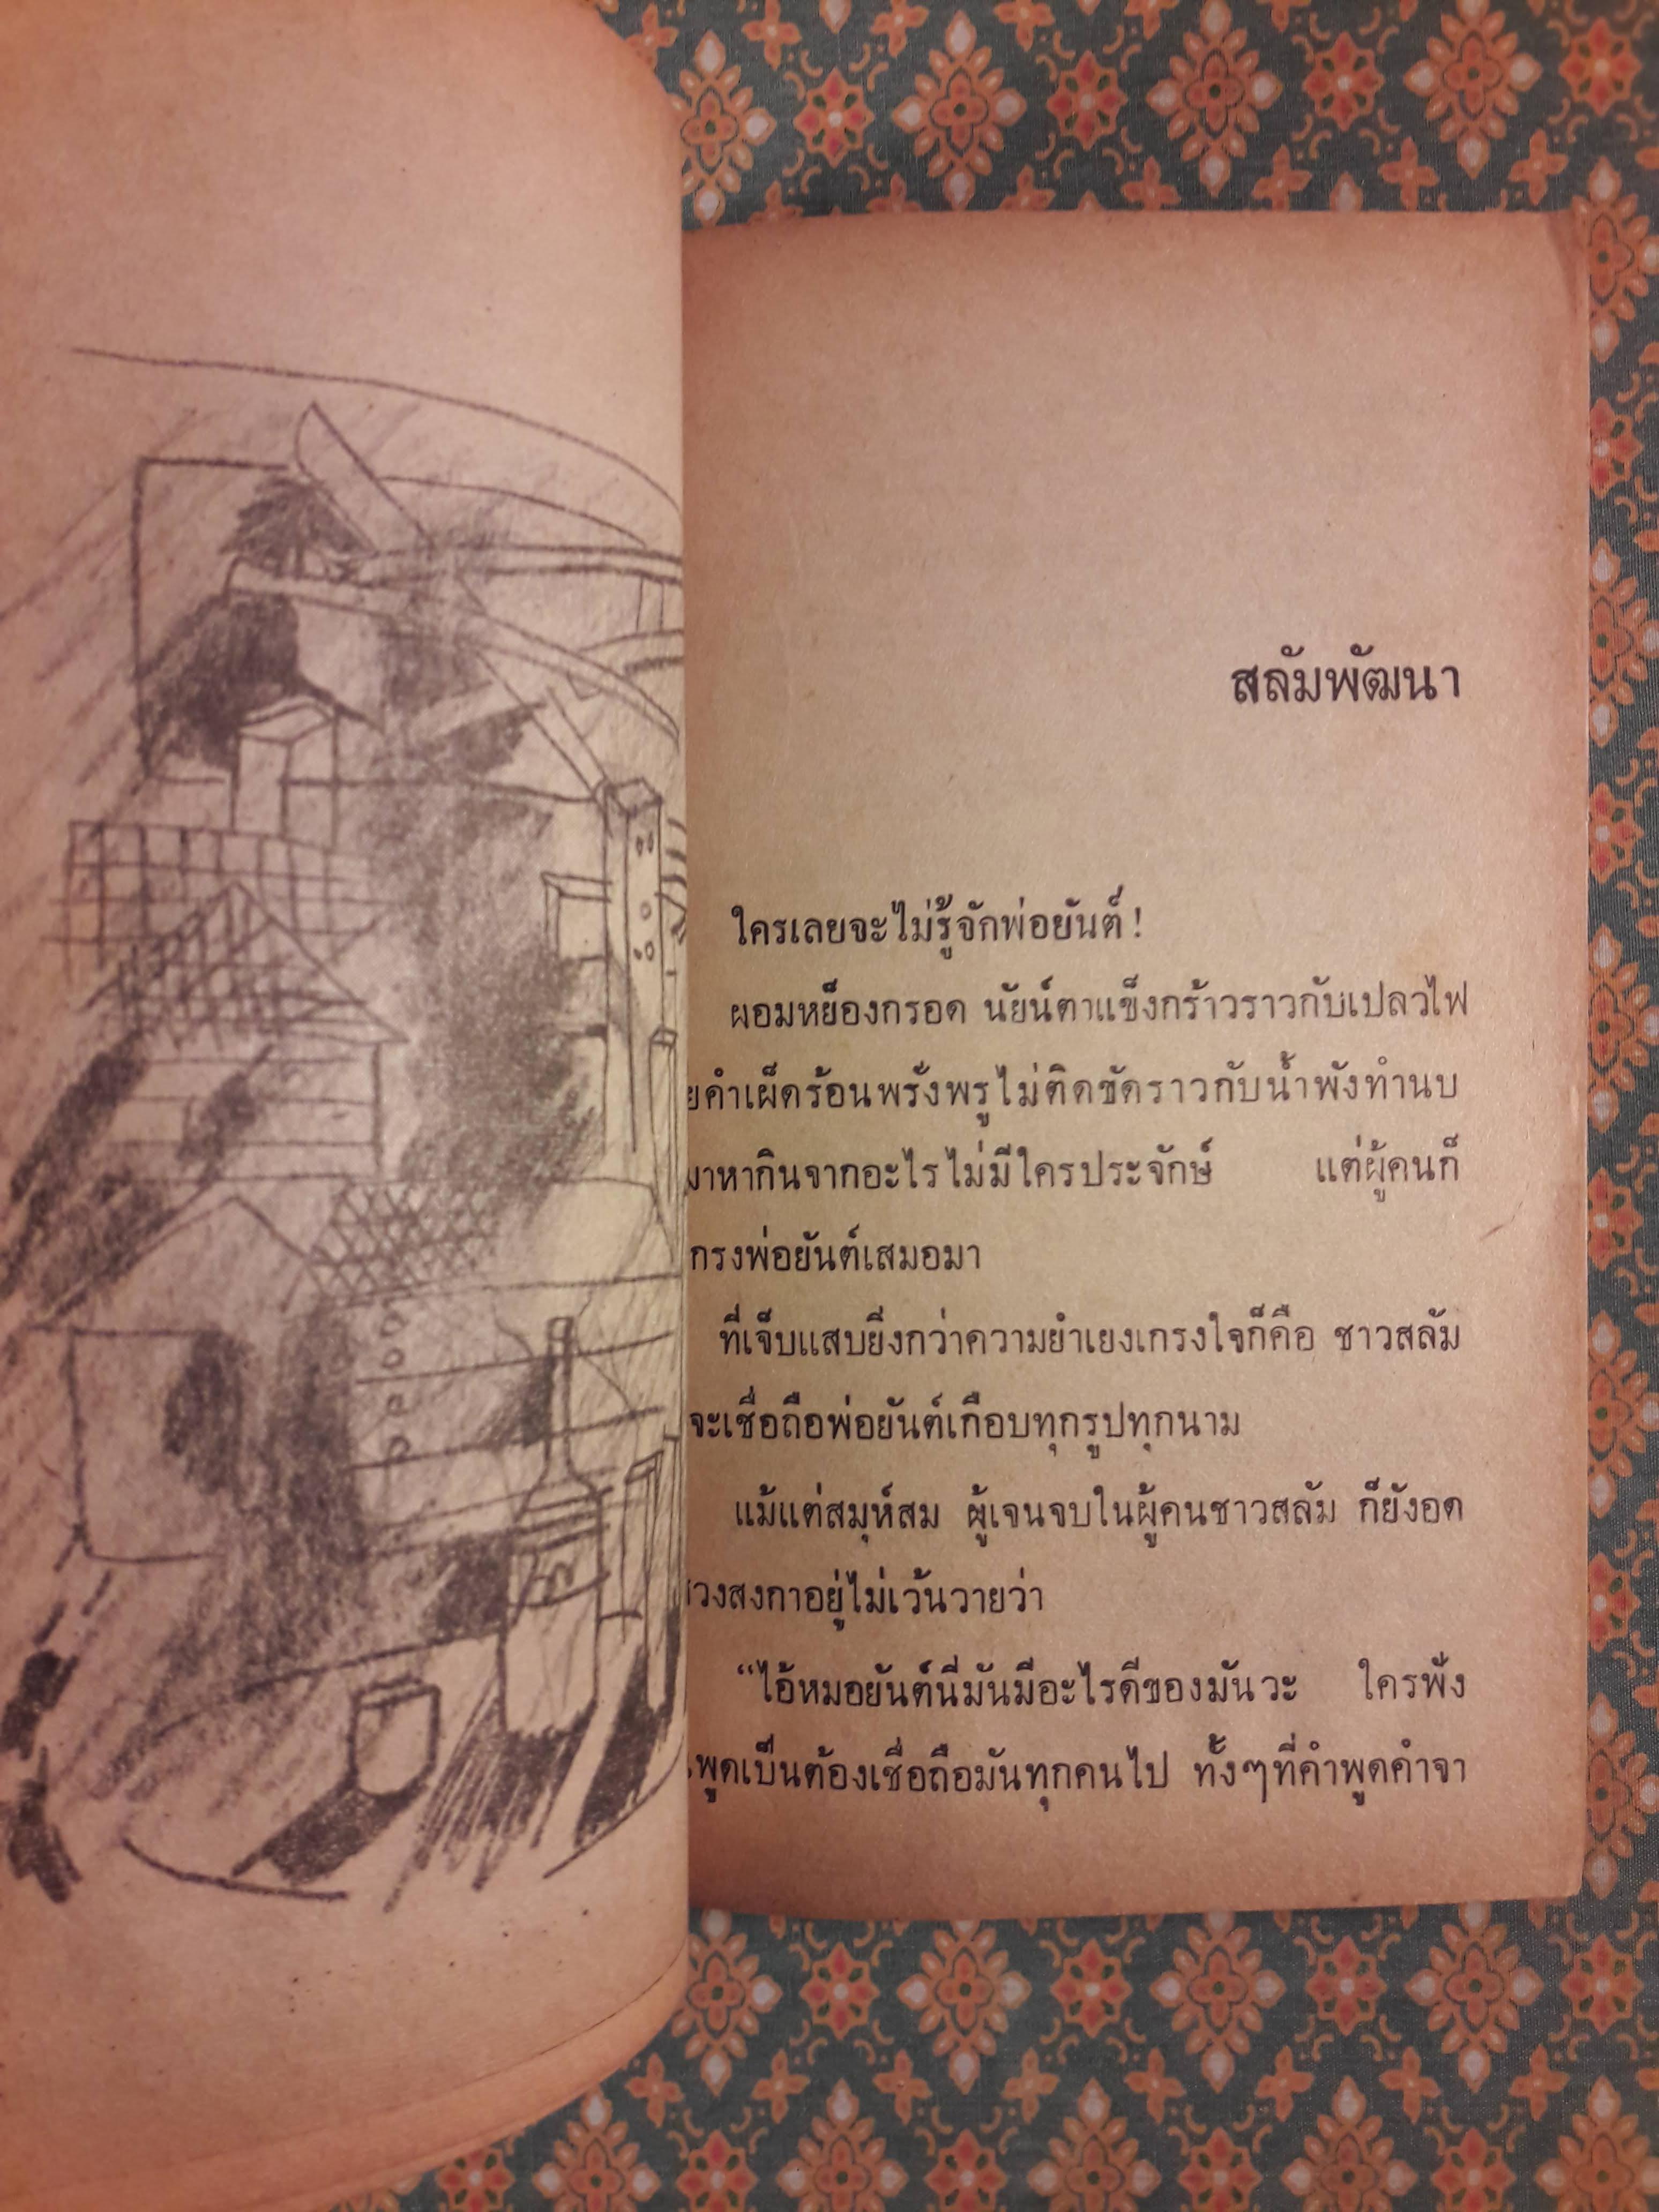 สลัมพัฒนา
ใครเลยจะไม่รู้จักพ่อยันต์!
ผอมหย็องกรอด นัยน์ตาแข็งกร้าวราวกับเปลวไฟ
ยคำเผ็ดร้อนพรั่งพรูไม่ติดขัดราวกับน้ำพังทำนบ
มาหากินจากอะไรไม่มีใครประจักษ์ แต่ผู้คนก็
กรงพ่อยันต์เสมอมา
ที่เจ็บแสบยิ่งกว่าความยำเยงเกรงใจก็คือ ชาวสลัม
จะเชื่อถือพ่อยันต์เกือบทุกรูปทุกนาม
แม้แต่สมุห์สม ผู้เจนจบในผู้คนชาวสลัม ก็ยังอด
วงสงกาอยู่ไม่เว้นวายว่า
“ไอ้หมอยันต์นี่มันมีอะไรดีของมันวะ ใครฟัง
พูดเป็นต้องเชื่อถือมันทุกคนไป ทั้งๆที่คำพูดคำจา